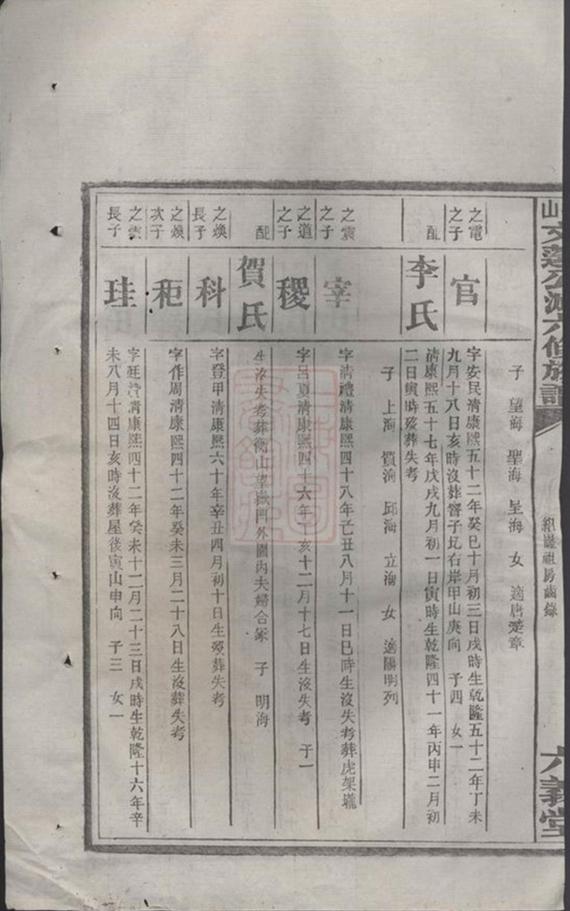 山文蓮公派六修族譜
六義堂
子 望海 聖海 呈海 女 適唐楚章
之電之子
官
字安民清康熙五十二年癸巳十月初三日戌時生乾隆五十二年丁未
九月十八日亥時沒葬 右岸甲山庚向 子四 女一
配
李氏
清康熙五十七年戊戌九月初一日寅時生乾隆四十一年丙申二月初
二日寅時歿葬失考
子 上海 邱海 立海 女 適陽明列
之震之子
宰
字清禮清康熙四十八年己丑八月十一日巳時生沒失考葬虎架壠
之道之子
稷
字呂夏清康熙四十六年丁亥十二月十七日生沒失考 子一
配
賀氏
生沒失考葬衡山望嶽門外園內夫婦合冢 子 明海
之煥長子
科
字登甲清康熙六十年辛丑四月初十日生歿葬失考
之煥次子
秬
字作周清康熙四十二年癸未三月二十八日生沒葬失考
長子
珪
字廷 清康熙四十二年癸未十二月二十三日戌時生乾隆十六年辛
未八月十四日亥時沒葬屋後寅山申向 子三 女一